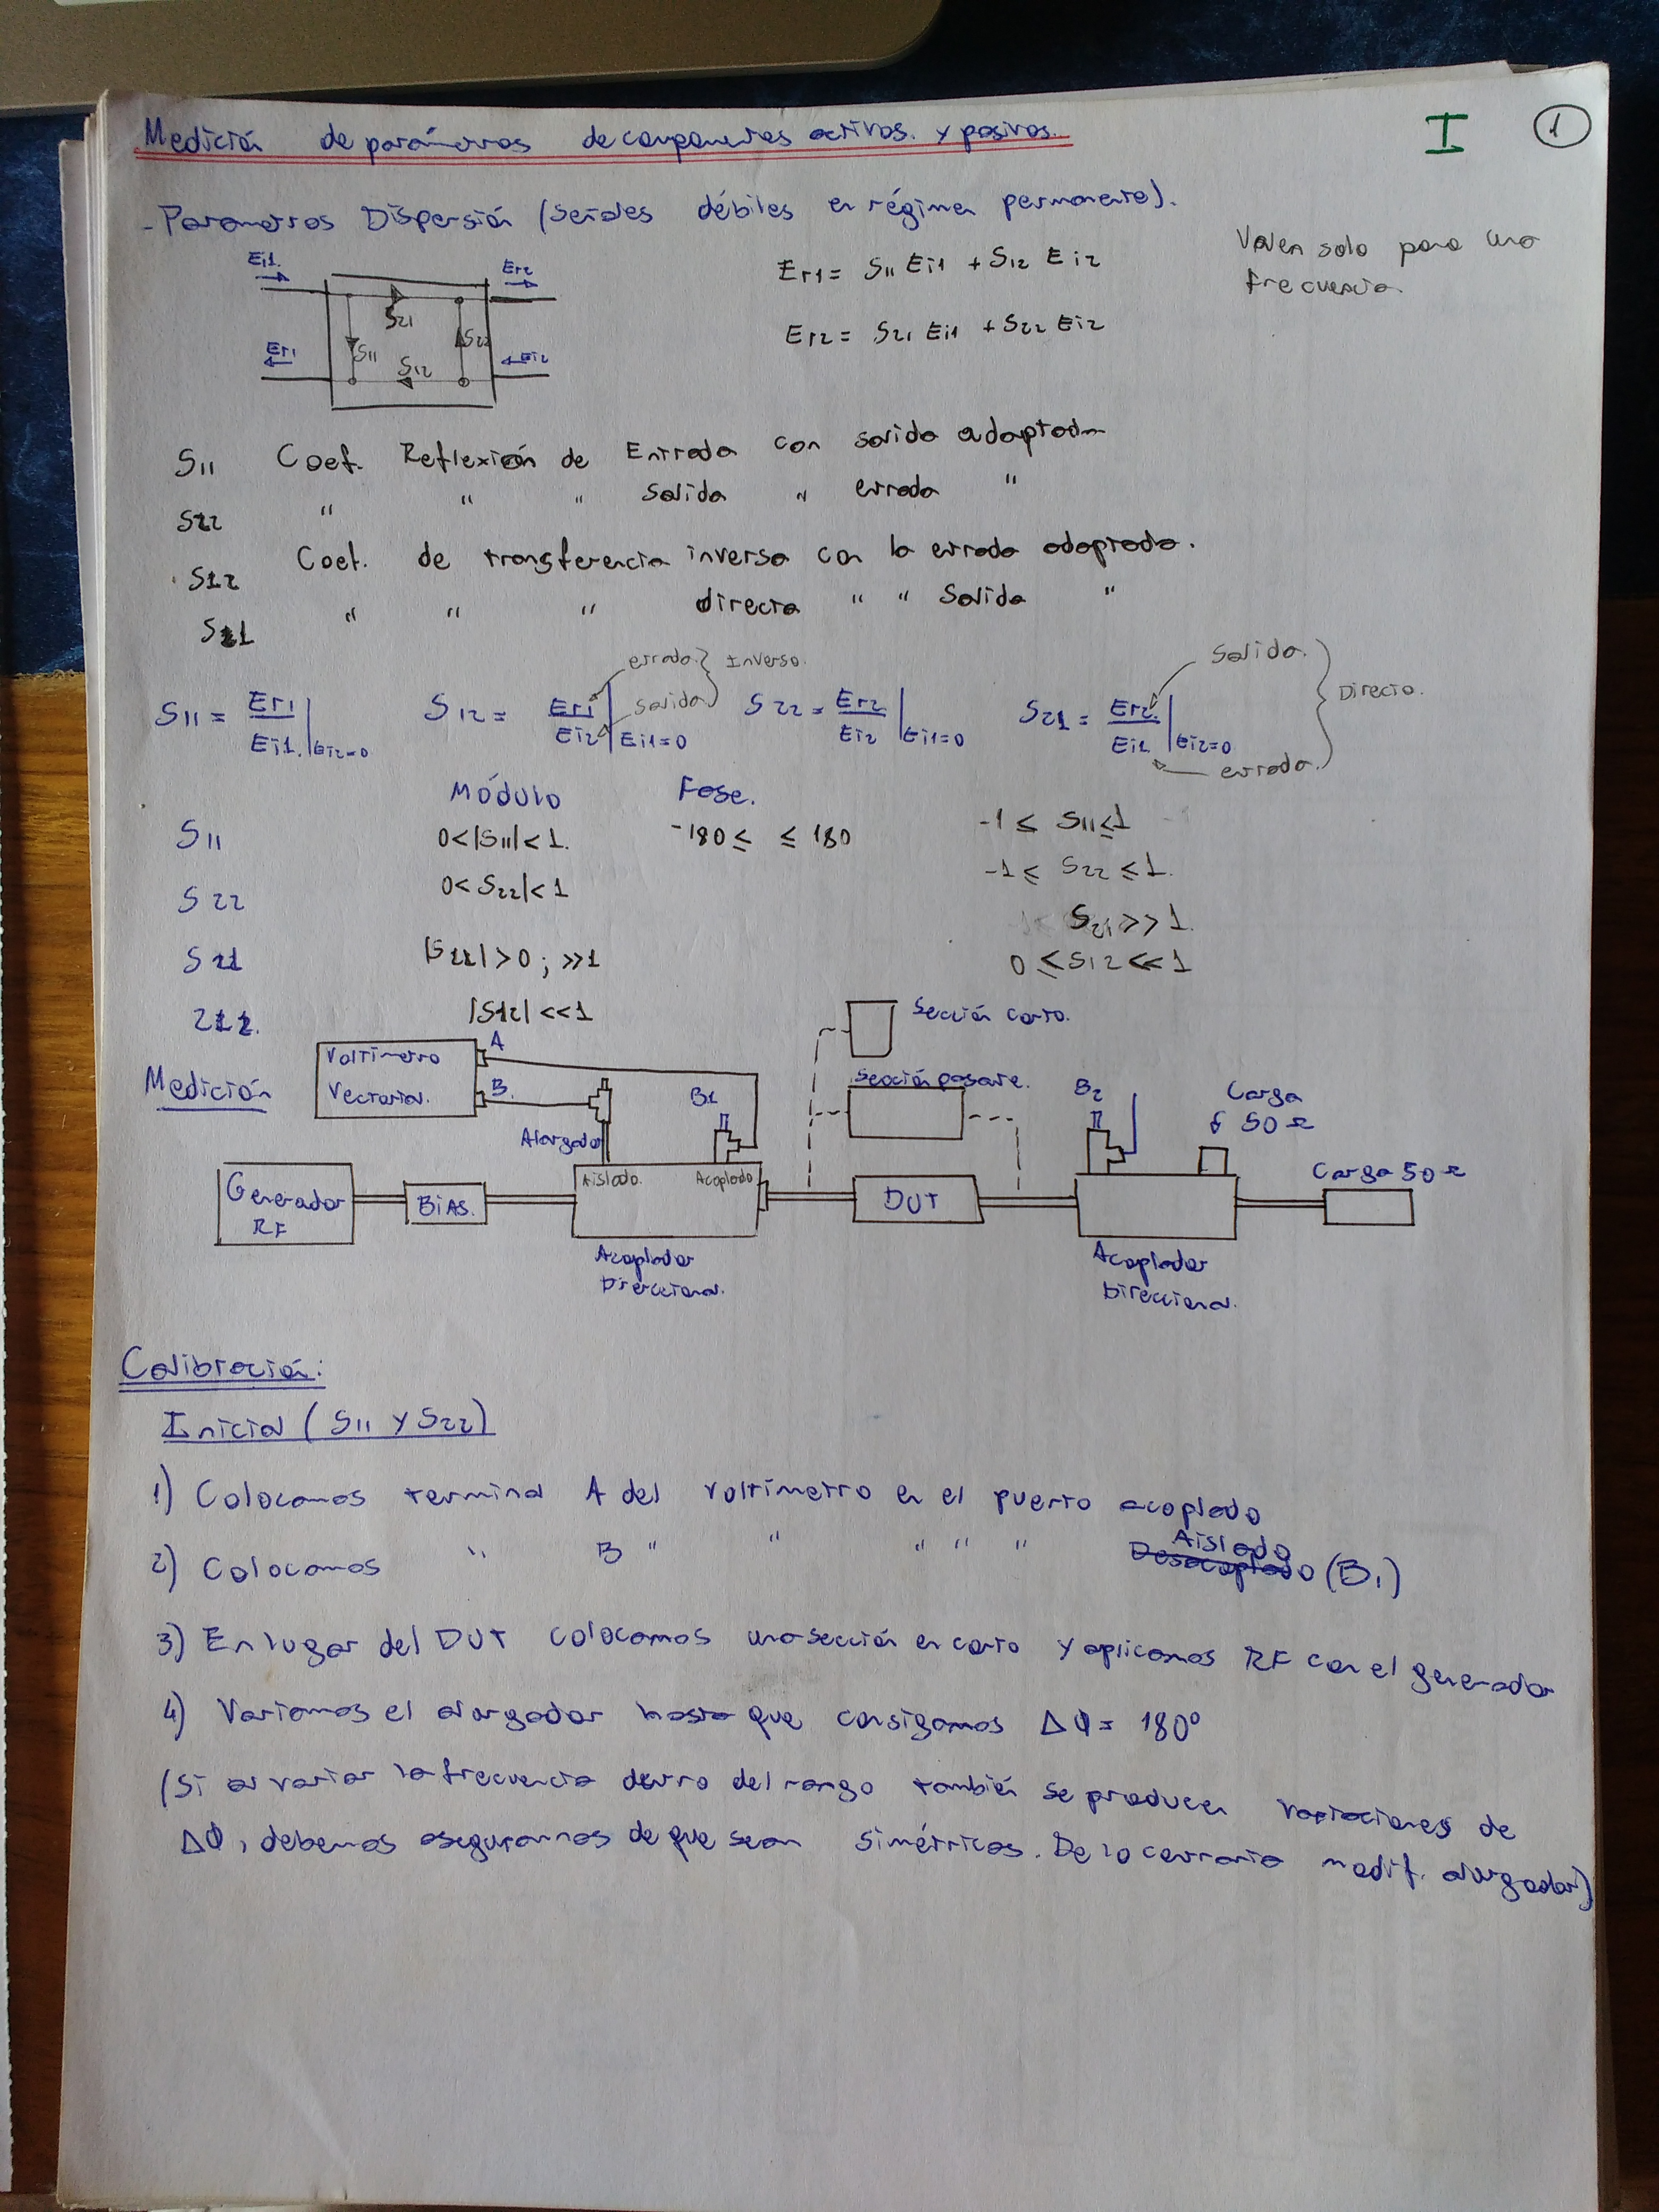 Medición de parámetros de componentes activos. y pasivos.
I 1
- Parametros Dispersión (señales débiles en régimen permanente).
Valen solo para una
frecuencia.
Ei1. Er2
S21
S11 S22
S12
Er1 Ei2
Er1 = S11 Ei1 + S12 Ei2
Er2 = S21 Ei1 + S22 Ei2
S11 Coef. Reflexión de Entrada con salida adaptada
S22 " " " Salida " entrada "
S12 Coef. de transferencia inversa con la entrada adaptada.
S21 " " " directa " " Salida "
entrada } Inverso.
salida
Salida.
Directo.
entrada.
S11 = Er1 / Ei1. | Ei2=0 S12 = Er1 / Ei2 | Ei1=0 S22 = Er2 / Ei2 | Ei1=0 S21 = Er2 / Ei1 | Ei2=0
Módulo Fase.
S11 0<|S11|<1. -180 ≤ ≤ 180 -1 ≤ S11 ≤ 1
S22 0< S22|<1 -1 ≤ S22 ≤ 1.
S21 |S21|>0 ; >>1 S21 >> 1.
|S12| <<1 0 ≤ S12 << 1
Medición
Voltímetro
Vectorial.
A
B.
Alargador
B1
Sección corto.
Sección pasante.
B2
Carga
50 Ω
Generador
RF
BIAS.
Aislado. Acoplado
DUT
Carga 50 Ω
Acoplador
Direccional.
Acoplador
Direccional.
Calibración:
Inicial (S11 y S22)
1) Colocamos terminal A del voltímetro en el puerto acoplado
2) Colocamos " B " " " " " Desacoplado Aislado (B1)
3) En lugar del DUT colocamos una sección en corto y aplicamos RF con el generador
4) Variamos el alargador hasta que consigamos ΔΦ = 180º
(Si al variar la frecuencia dentro del rango también se producen variaciones de
ΔΦ, debemos asegurarnos de que sean simétricos. De lo contrario modif. alargador)